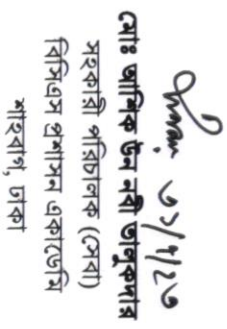 ৩১/৭/২৩
মোঃ আশিক উন নবী তালুকদার
সহকারী পরিচালক (সেবা)
বিসিএস প্রশাসন একাডেমি
শাহবাগ, ঢাকা